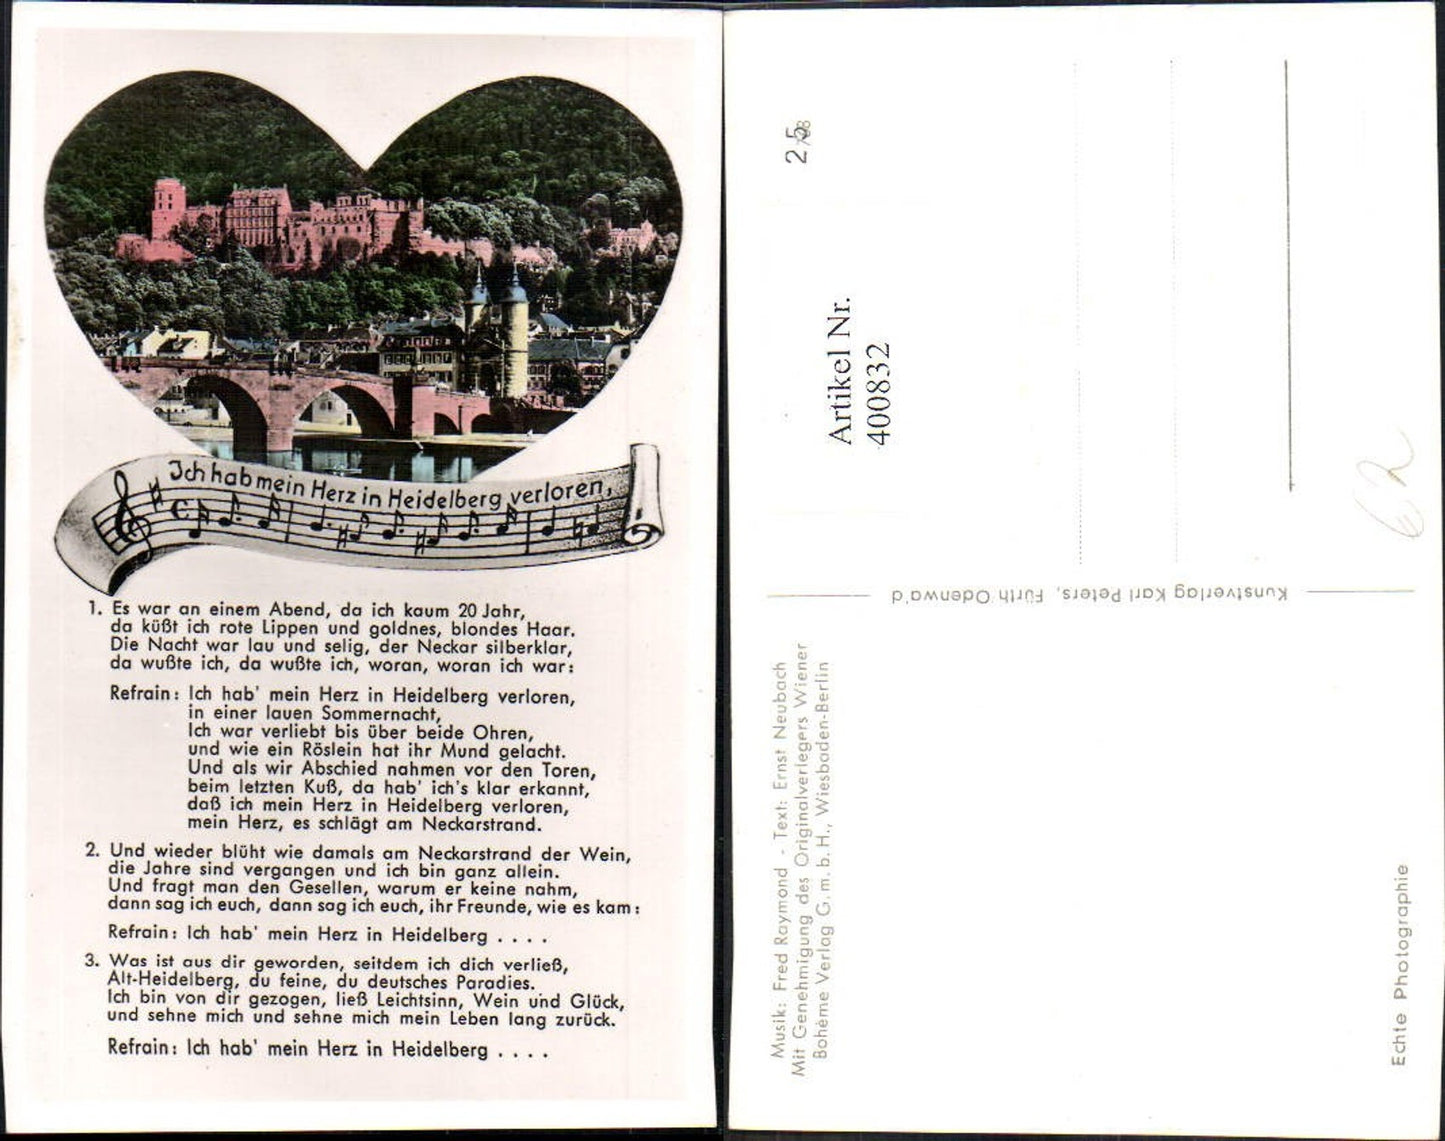 Ich hab mein Herz in Heidelberg verloren,
1. Es war an einem Abend, da ich kaum 20 Jahr,
da küßt ich rote Lippen und goldnes, blondes Haar.
Die Nacht war lau und selig, der Neckar silberklar,
da wußte ich, da wußte ich, woran, woran ich war:
Refrain: Ich hab' mein Herz in Heidelberg verloren,
in einer lauen Sommernacht,
Ich war verliebt bis über beide Ohren,
und wie ein Röslein hat ihr Mund gelacht.
Und als wir Abschied nahmen vor den Toren,
beim letzten Kuß, da hab' ich's klar erkannt,
daß ich mein Herz in Heidelberg verloren,
mein Herz, es schlägt am Neckarstrand.
2. Und wieder blüht wie damals am Neckarstrand der Wein,
die Jahre sind vergangen und ich bin ganz allein.
Und fragt man den Gesellen, warum er keine nahm,
dann sag ich euch, dann sag ich euch, ihr Freunde, wie es kam:
Refrain: Ich hab' mein Herz in Heidelberg . . . .
3. Was ist aus dir geworden, seitdem ich dich verließ,
Alt-Heidelberg, du feine, du deutsches Paradies.
Ich bin von dir gezogen, ließ Leichtsinn, Wein und Glück,
und sehne mich und sehne mich mein Leben lang zurück.
Refrain: Ich hab' mein Herz in Heidelberg . . . .
25
Artikel Nr.
400832
Kunstverlag Karl Peters, Fürth Odenwa'd
Musik: Fred Raymond - Text: Ernst Neubach
Mit Genehmigung des Originalverlegers Wiener
Bohème Verlag G. m. b. H., Wiesbaden-Berlin
Echte Photographie